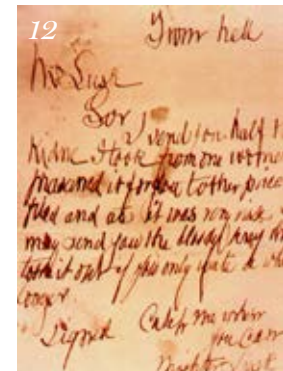 12
From hell
Mr Lusk
Sor
I send you half
Kidne I took from one women
prasarved it for you tother piece
fried and ate it was very nise
may send you the bloody knif
took it out if you only wate a
longer
Signed Catch me when
you can
Mishter Lusk